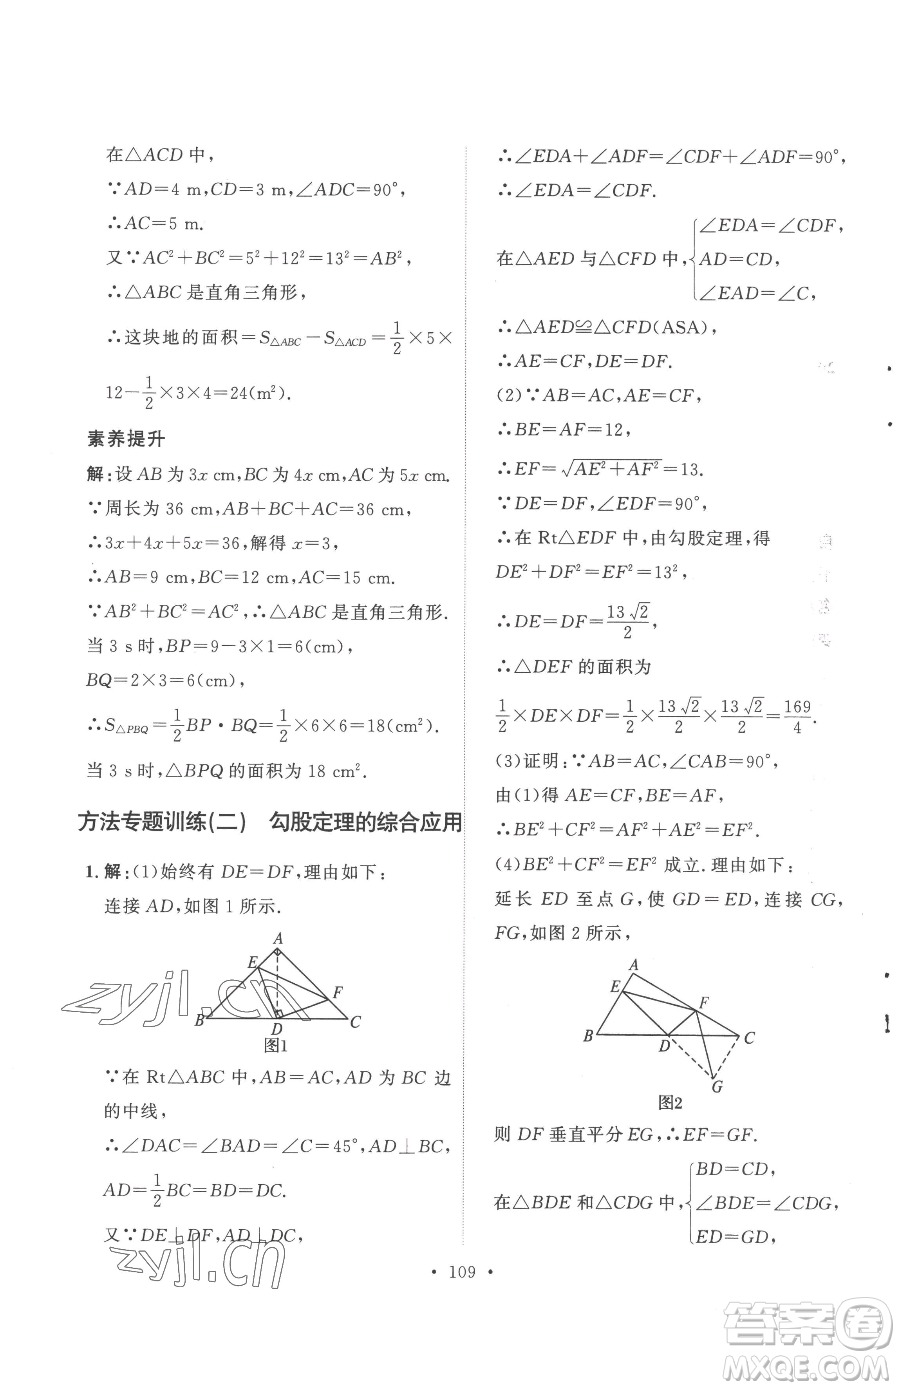 在△ACD 中，
∵AD=4 m，CD=3 m，∠ADC=90°，
∴AC=5 m.
又∵AC²+BC²=5²+12²=13²=AB²，
∴△ABC 是直角三角形，
∴这块地的面积=S△ABC－S△ACD=1/2×5×
12－1/2×3×4=24(m²).
素养提升
解：设 AB 为 3x cm，BC 为 4x cm，AC 为 5x cm.
∵周长为 36 cm，AB+BC+AC=36 cm，
∴3x+4x+5x=36，解得 x=3，
∴AB=9 cm，BC=12 cm，AC=15 cm.
∵AB²+BC²=AC²，∴△ABC 是直角三角形.
当 3 s 时，BP=9－3×1=6(cm)，
BQ=2×3=6(cm)，
∴S△PBQ=1/2BP·BQ=1/2×6×6=18(cm²).
当 3 s 时，△BPQ 的面积为 18 cm².
方法专题训练(二) 勾股定理的综合应用
1. 解：(1)始终有 DE=DF，理由如下：
连接 AD，如图 1 所示.
A
E
F
B
D
C
图1
∵在 Rt△ABC 中，AB=AC，AD 为 BC 边
的中线，
∴∠DAC=∠BAD=∠C=45°，AD⊥BC，
AD=1/2BC=BD=DC.
又∵DE⊥DF，AD⊥DC，
∴∠EDA+∠ADF=∠CDF+∠ADF=90°，
∴∠EDA=∠CDF.
∠EDA=∠CDF，
在△AED 与△CFD 中，AD=CD，
∠EAD=∠C，
∴△AED≌△CFD(ASA)，
∴AE=CF，DE=DF.
(2)∵AB=AC，AE=CF，
∴BE=AF=12，
∴EF=√(AE²+AF²)=13.
∵DE=DF，∠EDF=90°，
∴在 Rt△EDF 中，由勾股定理，得
DE²+DF²=EF²=13²，
∴DE=DF=13√2/2，
∴△DEF 的面积为
1/2×DE×DF=1/2×13√2/2×13√2/2=169/4.
(3)证明：∵AB=AC，∠CAB=90°，
由(1)得 AE=CF，BE=AF，
∴BE²+CF²=AF²+AE²=EF².
(4)BE²+CF²=EF² 成立.理由如下：
延长 ED 至点 G，使 GD=ED，连接 CG，
FG，如图 2 所示，
A
E
F
B
D
C
G
图2
则 DF 垂直平分 EG，∴EF=GF.
BD=CD，
在△BDE 和△CDG 中，∠BDE=∠CDG，
ED=GD，
• 109 •
zyjl.cn
zyjl.cn
答案圈
MXQE.COM